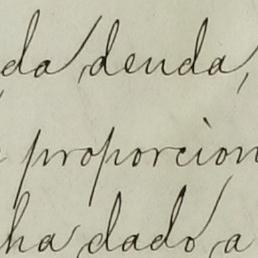 da denda,
proporcion
ha dado a